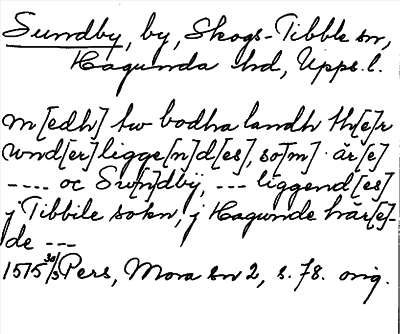 Sundby, by, Skogs-Tibble sn,
Hagunda hd, Upps. l.
m[edh] tw bodha landh th[e]r
wnd[er]ligge[n]d[es], so[m] är[e]
---- oc Sw[n]dbÿ, --- liggend[es]
j Tibbile sokn, j Hagunde här[e]-
de ---
1515 30/3 Pers, Mora sn 2, s. 78. orig.